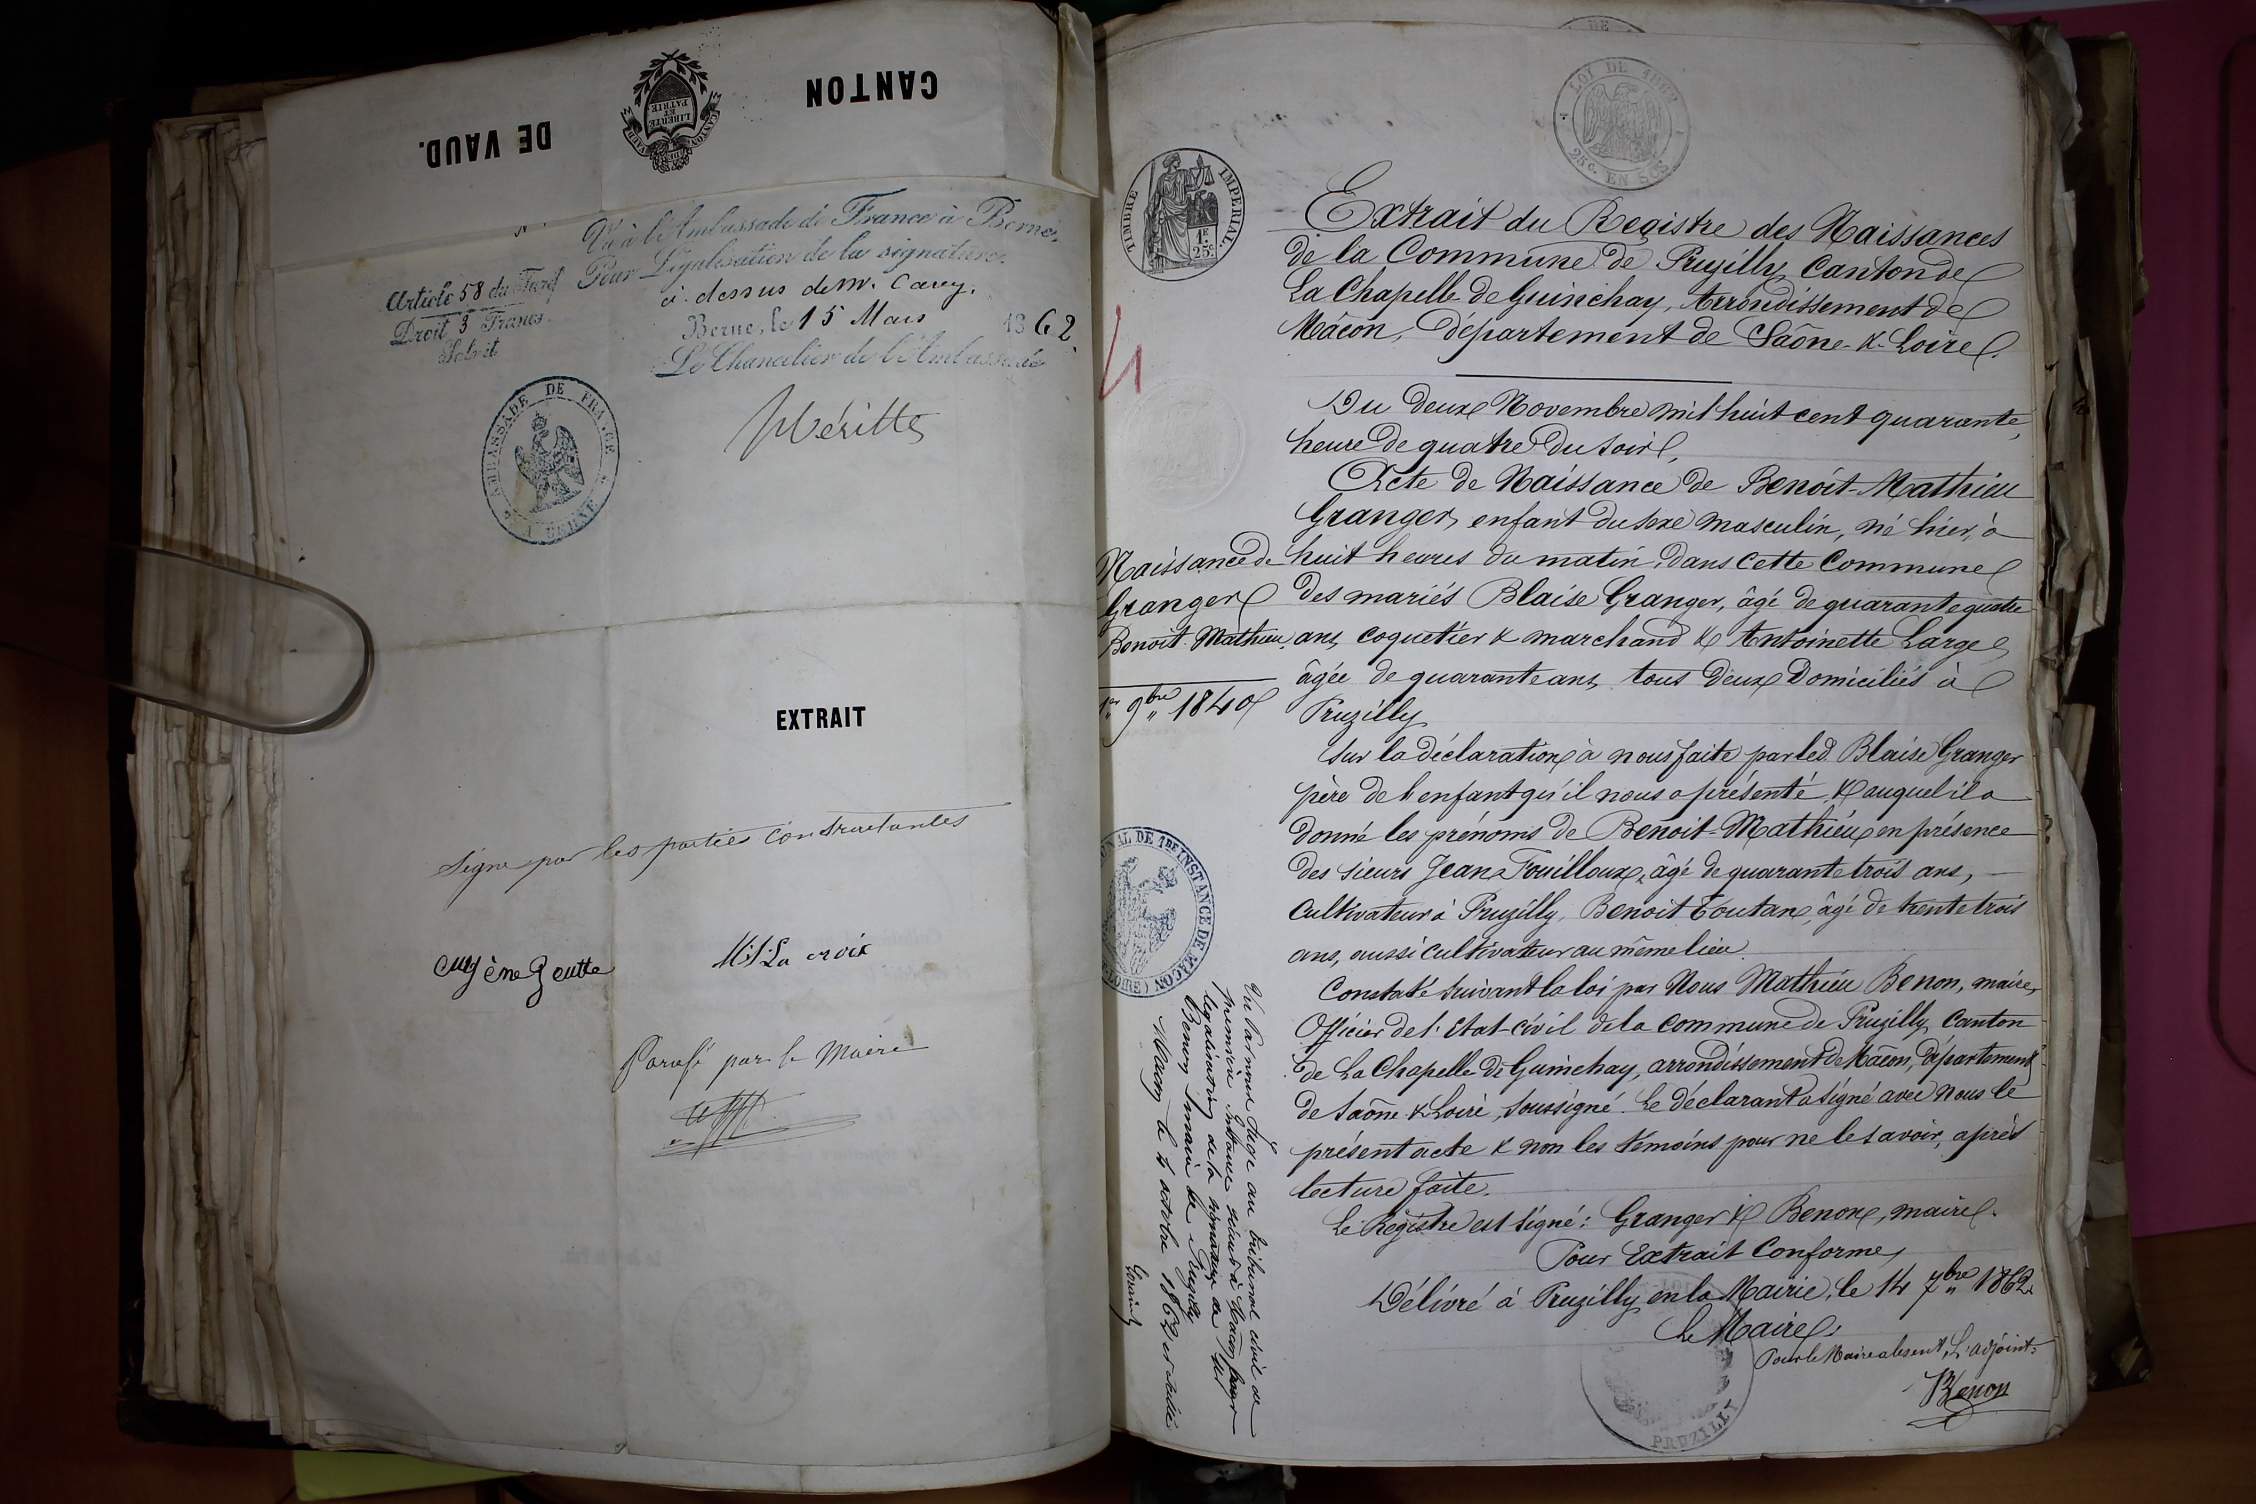 CANTON DE VAUD.
LIBERTÉ
ET
PATRIE
Vu à l'Ambassade de France à Berne,
Pour Légalisation de la signature
ci-dessus de M. Carey.
Berne, le 15 Mars 1862
Le Chancelier de l'Ambassade
Article 58 du Tarif
Droit 3 Francs
AMBASSADE DE FRANCE
A BERNE
EXTRAIT
Signé par les parties contractantes
eugène goutte
M. La croix
Parafé par le Maire
LOI DE 1862
25c. EN SUS
TIMBRE IMPERIAL.
1F
25c
Extrait du Registre des Naissances
de la Commune de Pruzilly, Canton de
La Chapelle de Guinchay, Arrondissement de
Mâcon, département de Saône & Loire.
Du deux Novembre mil huit cent quarante,
heure de quatre du soir,
Acte de Naissance de Benoît-Mathieu
Granger, enfant du sexe masculin, né hier, à
huit heures du matin, dans cette Commune
des mariés Blaise Granger, âgé de quarante quatre
ans, coquetier & marchand & Antoinette Large
âgée de quarante ans, tous deux Domiciliés à
Pruzilly
Sur la déclaration à nous faite par led. Blaise Granger
père de l'enfant qu'il nous a présenté, & auquel il a
donné les prénoms de Benoit-Mathieu en présence
des sieurs Jean Fouilloux, âgé de quarante trois ans,
Cultivateur à Pruzilly, Benoit Toutan, âgé de trente trois
ans, aussi cultivateur au même lieu.
Constaté suivant la loi par Nous Mathieu Benon, maire,
Officier de l'Etat-civil de la commune de Pruzilly, Canton
de La Chapelle de Guinchay, arrondissement de Mâcon, département
de Saône & Loire, soussigné. Le déclarant a signé avec Nous le
présent acte & non les témoins pour ne le savoir, après
lecture faite.
Le Registre est signé: Granger & Benon, maire.
Pour Extrait Conforme,
Délivré à Pruzilly, en la Mairie, le 14 7bre 1862
Le Maire,
Pour le Maire absent, L'adjoint:
Benon
PRUZILLY
Naissance de
Granger
Benoit Mathieu.
1er 9bre 1840
TRIBUNAL DE 1RE INSTANCE DE MACON
LOIRE)
Vu par nous juge au tribunal civil de
première instance séant à Mâcon pour
légalisation de la signature de Mr
Benon, maire de Pruzilly
Mâcon le 4 octobre 1862